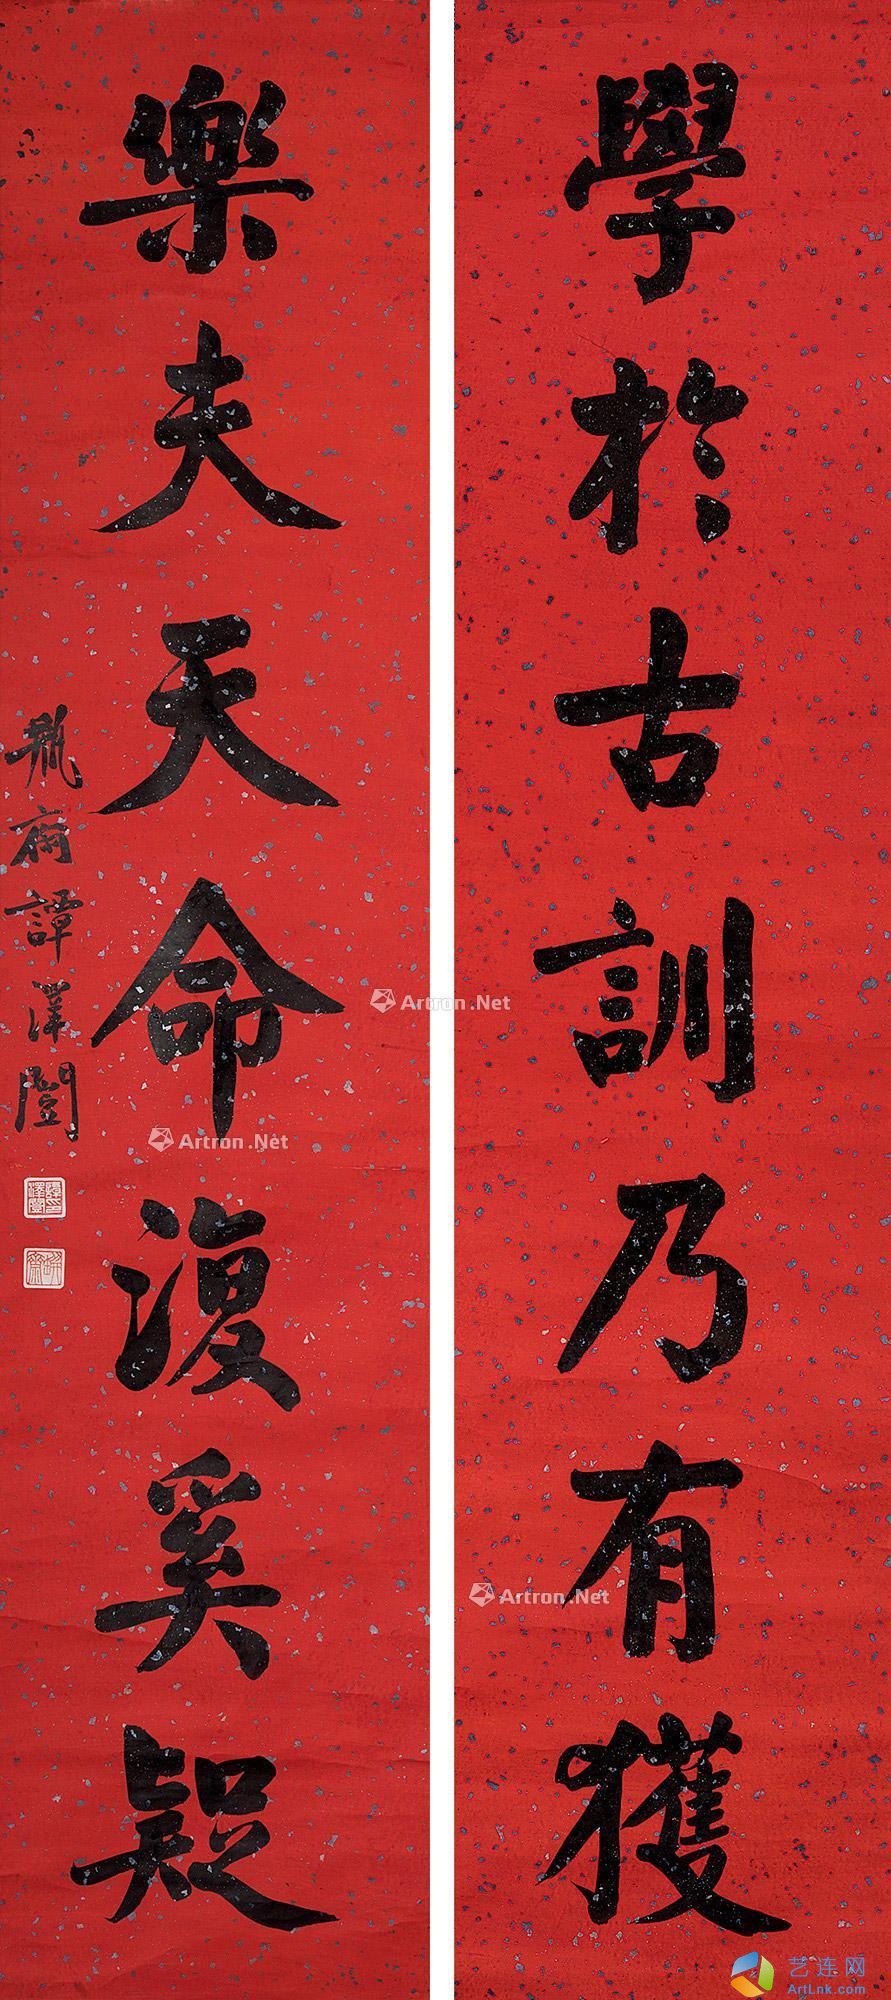 學於古訓乃有獲
樂夫天命復奚疑
瓶齋譚澤闓
Artron.Net
Artron.Net
Artron.Net
艺连网
ArtLnk.com